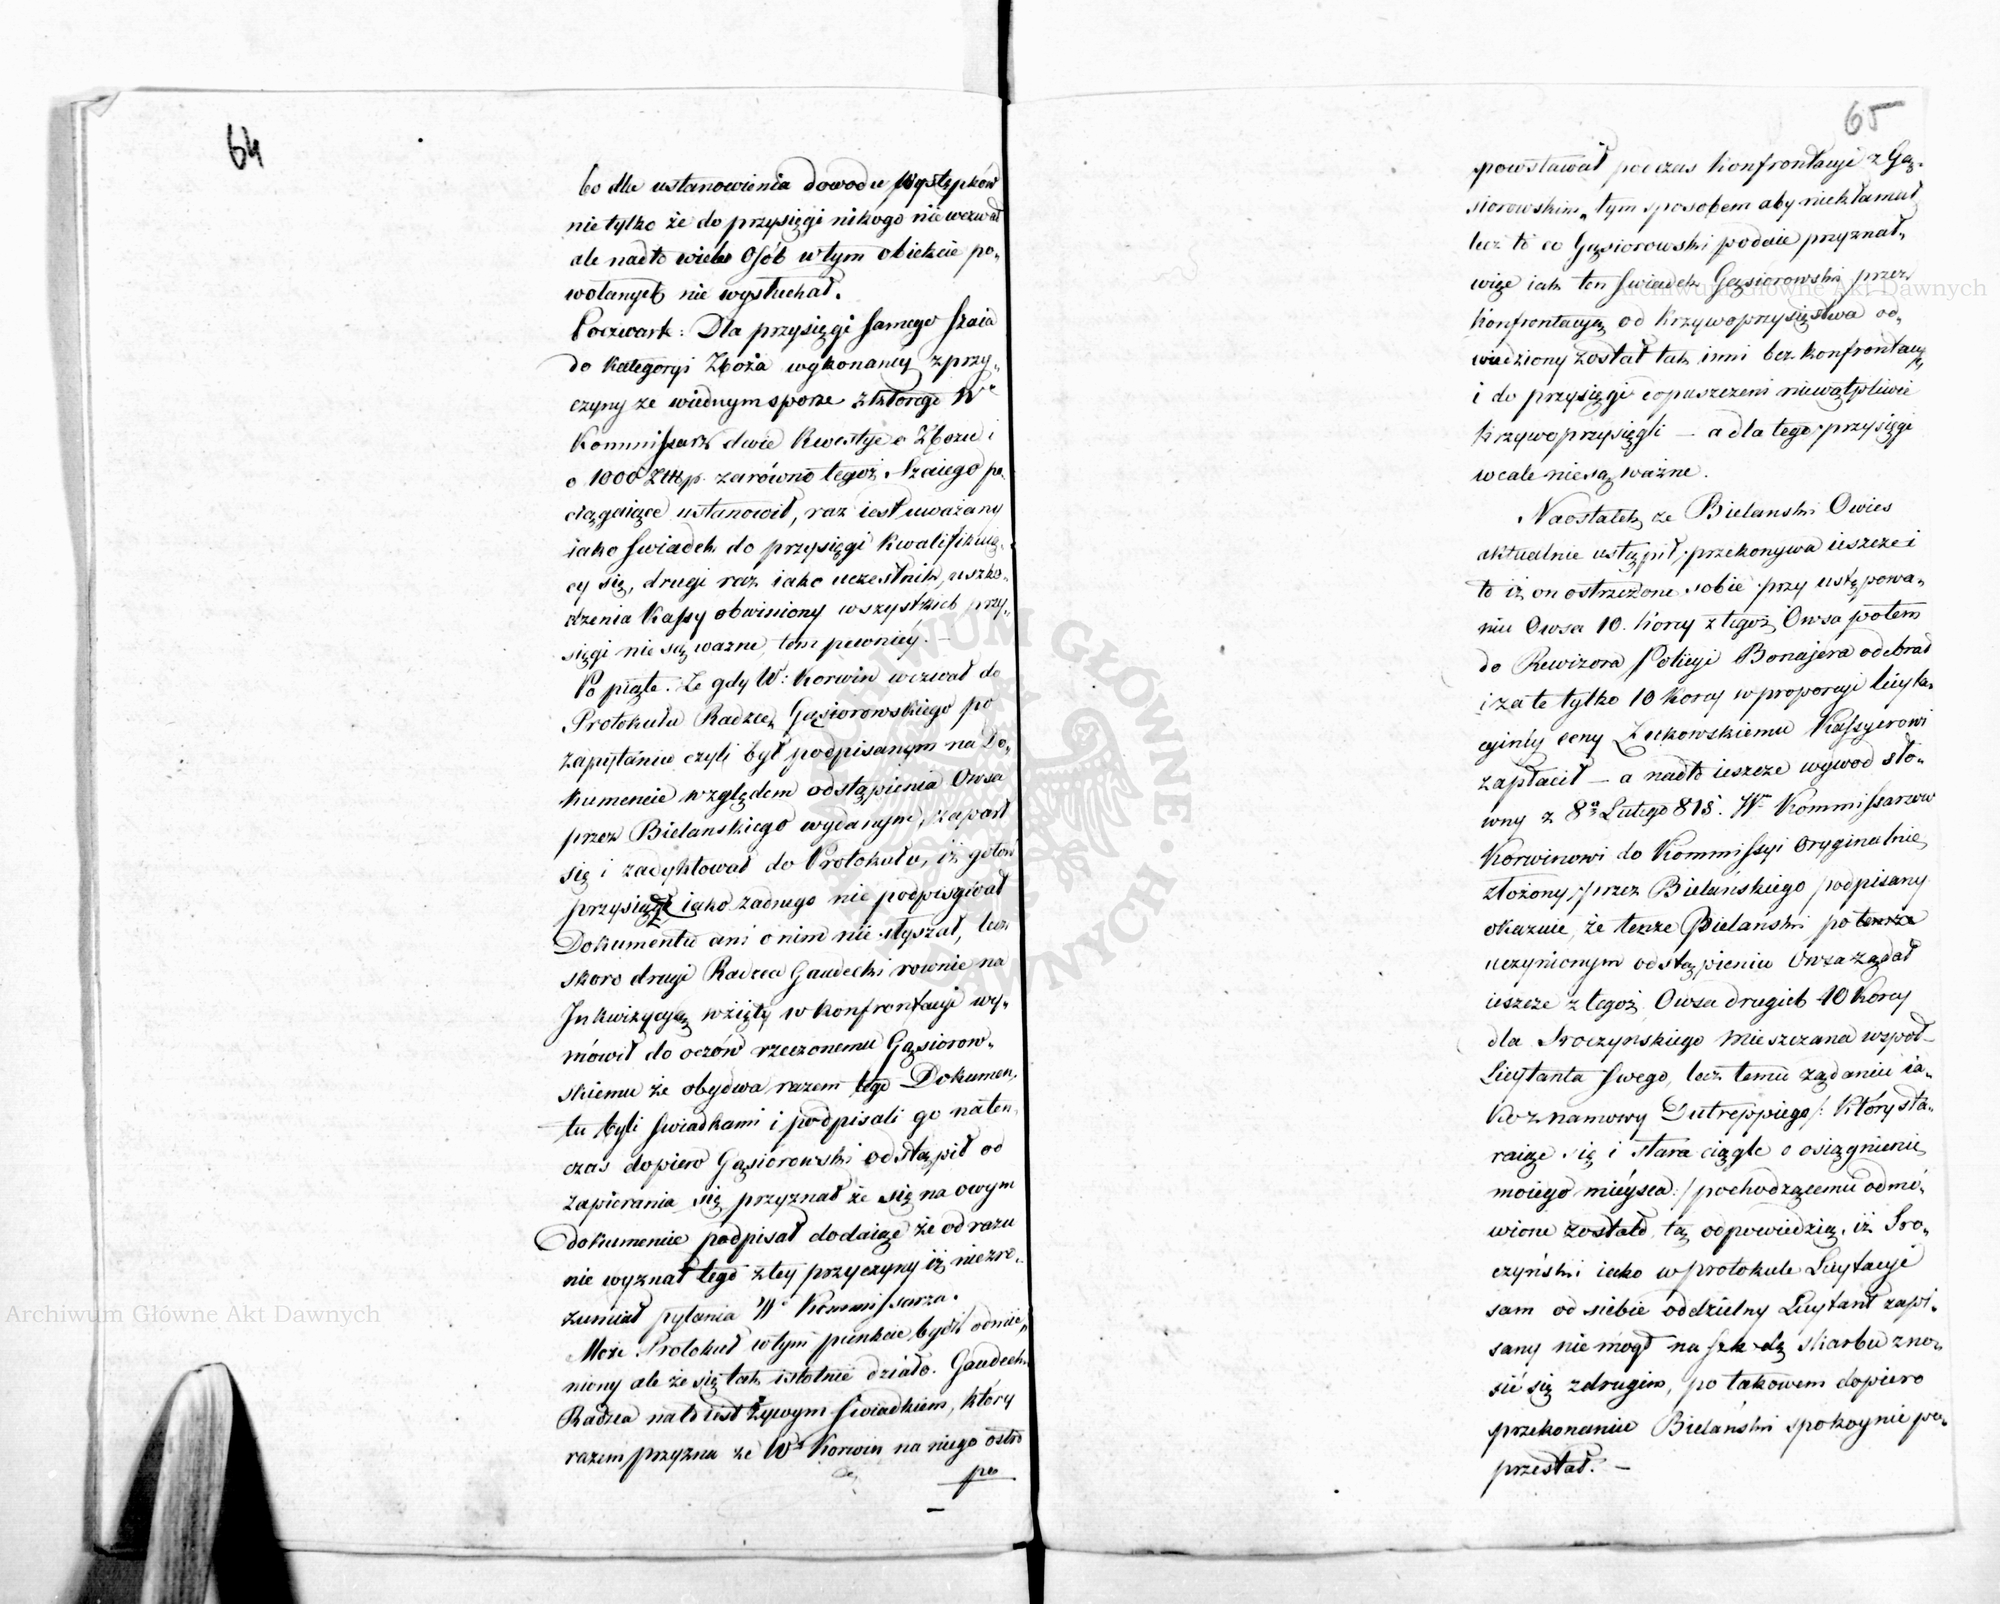 64
bo dla ustanowienia dowodu występków
nie tylko że do przysięgi nikogo nie wezwał
ale nadto wiele Osób w tym obiekcie po„
wołanych nie wysłuchał.
Poczwark: Dla przysięgi samego Szaia
do kategoryi Zboża wykonaney z przy„
czyny że wiednym sporze z którego Wc
Kommissarz dwie kwestye o Zboże i
o 1000 Złtp. zarówno tegoż Szaiego po
ciągaiące ustanowił, raz iest uważany
iako swiadek do przysięgi kwalifikuią„
cy się, drugi raz iako uczestnik uszko„
dzenia Kassy obwiniony wszystkich przy„
sięgi nie są ważne tem pewniéy. —
Po piąte. Że gdy W: Korwin wezwał do
Protokułu Radzcę Gąsiorowskiego po
zapytaniu czyli był podpisanym na Do„
kumencie względem odstąpienia Owsa
przez Bielanskiego wydanym, zaparł
się i zadyktował do Protokułu, iż gotów
przysiądz iako żadnego nie podpisywał
Dokumentu ani o nim nie słyszał, lecz
skoro drugi Radzca Gaudecki rownie na
Inkwizycyą wzięty w konfrontacyi wy„
mówił do oczów rzeczonemu Gąsiorow„
skiemu że obydwa razem tego Dokumen„
tu byli swiadkami i podpisali go naten„
czas dopiero Gąsiorowski odstąpił od
zapierania się przyznał że się na owym
dokumencie podpisał dodaiąc że od razu
nie wyznał tego z tey przyczyny iż niezro„
zumiał pytania Wo Kommissarza.
Może Protokuł w tym punkcie bydź odmie„
niony ale że się tak istotnie działo. Gaudecki
Radzca na to iest żywym swiadkiem, który
razem przyzna że Wy Korwin na niego ostro
po
65
powstawał podczas konfrontacyi z Gą„
siorowskim„ tym sposobem aby niekłamał
lecz to co Gąsiorowski podaie przyznał„
więc iak ten swiadek Gąsiorowski przez
konfrontacyą od krzywoprzysięstwa od„
wiedziony został tak inni bez konfrontacyi
i do przysięgi dopuszczeni niewątpliwie
krzywoprzysięgli — a dla tego przysięgi
wcale nie są ważne.
Naostatek że Bielanski Owies
aktualnie ustąpił, przekonywa ieszcze i
to iż on ostrzeżone sobie przy ustępowa„
niu Owsa 10. korcy z tegoż Owsa potem
do Rewizora Policyi Bonajera odebrał
i za te tylko 10 korcy w proporcyi licyta„
cyiney ceny Żutkowskiemu Kassyerowi
zapłacił — a nadto ieszcze wywod sło„
wny z 8o Lutego 818. Wu Kommissarzow
Korwinowi do Kommissyi Oryginalnie
złożony, przez Bielańskiego podpisany
okazuie, że tenże Bielański po
uczynionym odstąpieniu Owsa żądał
ieszcze z tegoż Owsa drugich 10 korcy
dla Sroczynskiego Mieszczana współ„
Licytanta swego, lecz temu żądaniu ia„
ko z namowy Dutreppiego /: który sta„
raiąc się i stara ciągle o osiągnienie
moiego mieysca :/ pochodzącemu odmó„
wione zostało tą odpowiedzią, iż Sro„
czyński iako w protokule Licytacyi
sam od siebie oddzielny Licytant zapi„
sany nie mógł na szkodę skarbu zno„
sić się z drugim, po takowem dopiero
przekonaniu Bielański spokoynie po„
przestał. —
Archiwum Główne Akt Dawnych
Archiwum Główne Akt Dawnych
ARCHIWUM GŁÓWNE AKT DAWNYCH